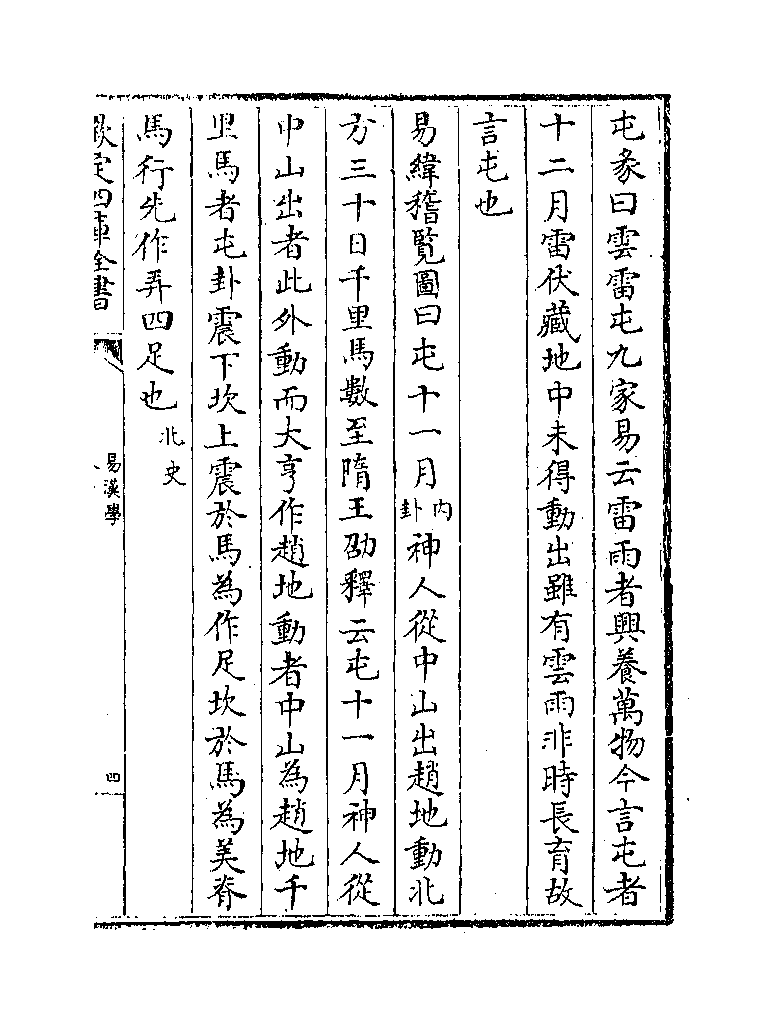 屯彖曰雲雷屯九家易云雷雨者興養萬物今言屯者
十二月雷伏藏地中未得動出雖有雲雨非時長育故
言屯也
易緯稽覽圖曰屯十一月内卦神人從中山出趙地動北
方三十日千里馬數至隋王劭釋云屯十一月神人從
中山出者此外動而大亨作趙地動者中山為趙地千
里馬者屯卦震下坎上震於馬為作足坎於馬為美脊
馬行先作弄四足也北史
欽定四庫全書
易漢學
四